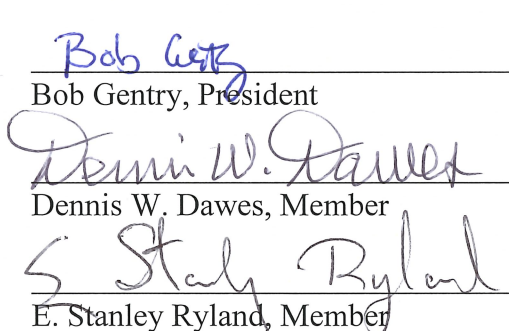 Bob Gentry
Bob Gentry, President
Dennis W. Dawes
Dennis W. Dawes, Member
E Stanley Ryland
E. Stanley Ryland, Member